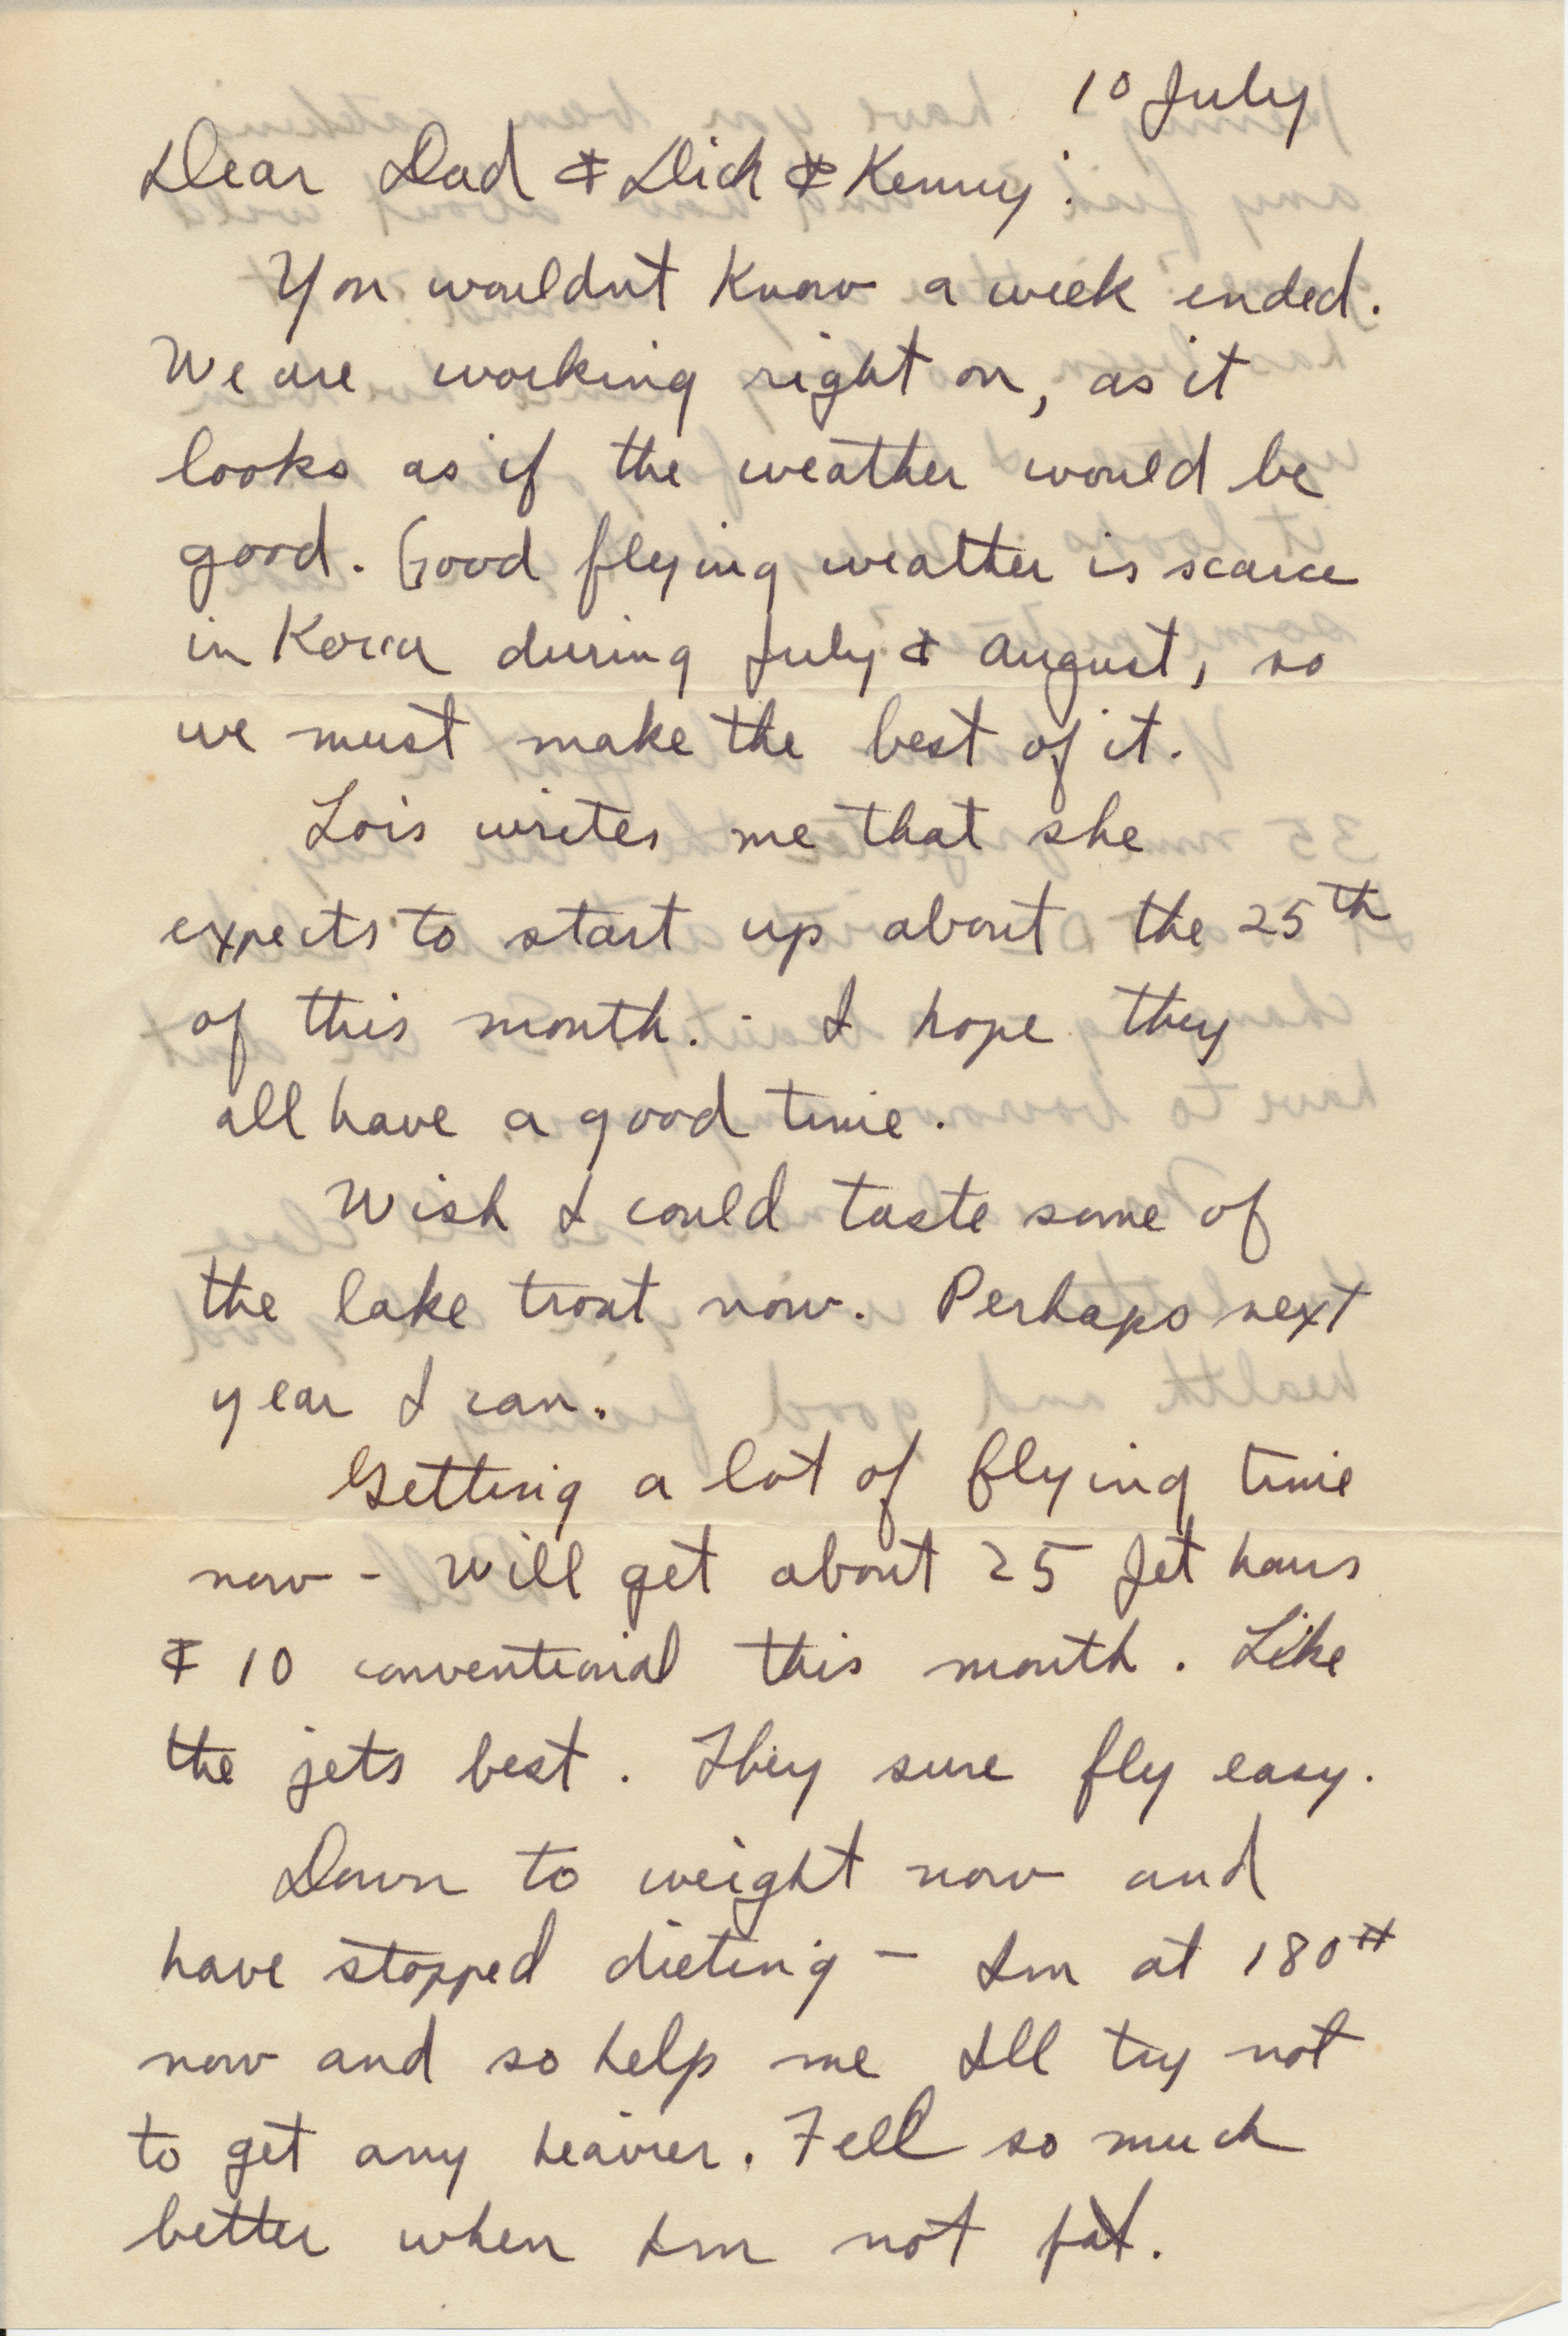 10 July
Dear Dad & Dick & Kenny:
You wouldnt know a week ended.
We are working right on, as it
looks as if the weather would be
good. Good flying weather is scarce
in Korea during July & August, so
we must make the best of it.
Lois writes me that she
expects to start up about the 25th
of this month. - I hope they
all have a good time.
Wish I could taste some of
the lake trout now. Perhaps next
year I can.
Getting a lot of flying time
now - Will get about 25 Jet hours
& 10 conventional this month. Like
the jets best. They sure fly easy.
Down to weight now and
have stopped dieting - Im at 180#
now and so help me Ill try not
to get any heavier. Fell so much
better when Im not fat.